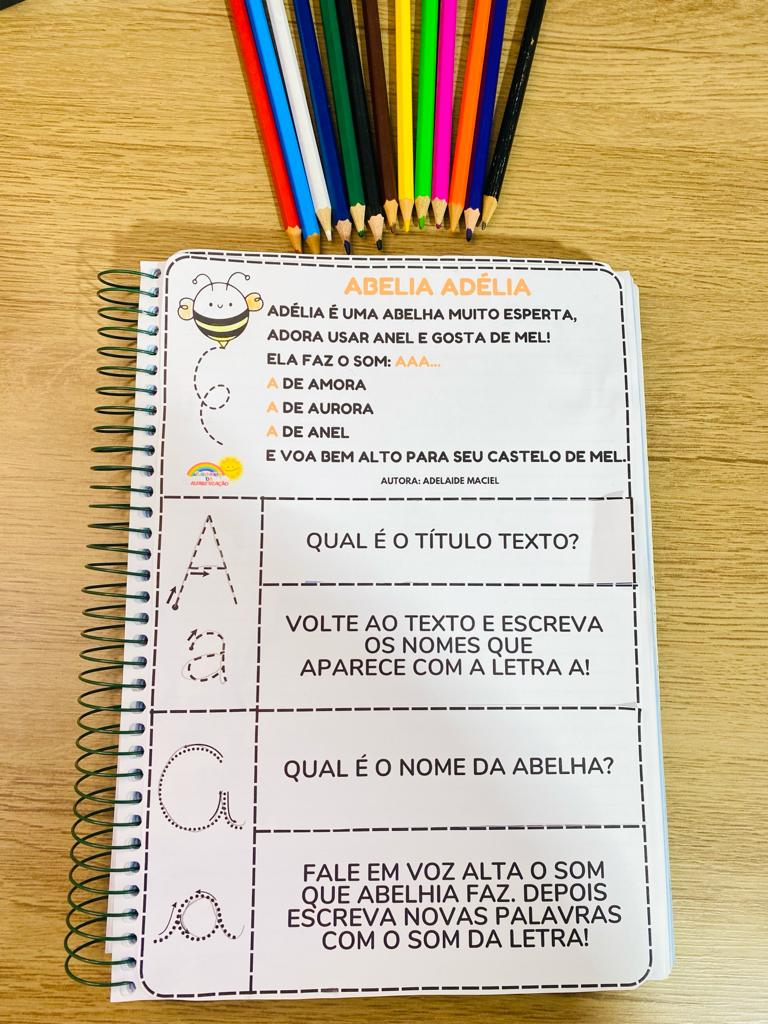 ABELIA ADÉLIA
ADÉLIA É UMA ABELHA MUITO ESPERTA,
ADORA USAR ANEL E GOSTA DE MEL!
ELA FAZ O SOM: AAA...
A DE AMORA
A DE AURORA
A DE ANEL
E VOA BEM ALTO PARA SEU CASTELO DE MEL.
AUTORA: ADELAIDE MACIEL
DA
ALFABETIZAÇÃO
A
a
QUAL É O TÍTULO TEXTO?
VOLTE AO TEXTO E ESCREVA
OS NOMES QUE
APARECE COM A LETRA A!
A
a
QUAL É O NOME DA ABELHA?
FALE EM VOZ ALTA O SOM
QUE ABELHIA FAZ. DEPOIS
ESCREVA NOVAS PALAVRAS
COM O SOM DA LETRA!